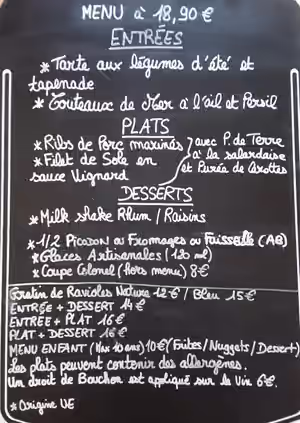 MENU à 18,90 €
ENTRÉES
* Tarte aux légumes d'été et
tapenade
* Couteaux de Mer a l'ail et Persil
PLATS
* Ribs de Porc marinés
* Filet de Sole en
sauce Vignard
avec P. de Terre
à la salardaise
et Purée de Carottes
DESSERTS
* Milk shake Rhum / Raisins
* 1/2 PICODON ou Fromages ou Faisselle (AB)
* Glaces Artisanales (120 ml)
* Coupe Colonel (hors menu) 8€
Gratin de Ravioles Nature 12€ / Bleu 15€
ENTRÉE + DESSERT 14€
ENTRÉE + PLAT 16€
PLAT + DESSERT 16€
MENU ENFANT (Max 10 ans) 10€ (Frites/Nuggets/Dessert)
Les plats peuvent contenir des allergènes.
Un droit de Bouchon est appliqué sur le Vin 6€.
* Origine UE